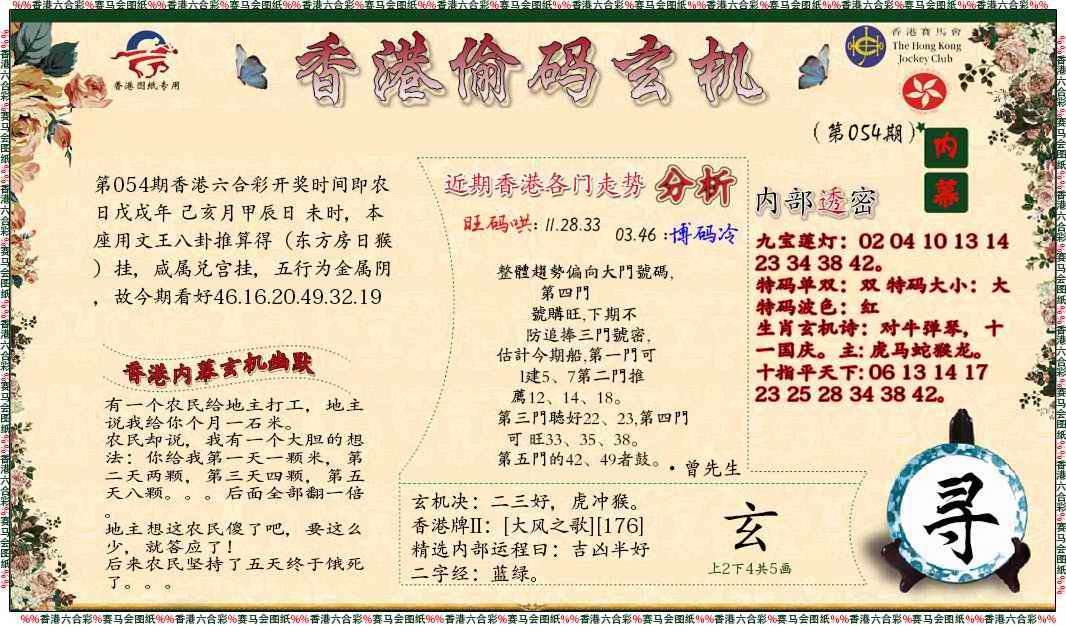 %%香港六合彩%赛马会图纸%%香港六合彩%赛马会图纸%%香港六合彩%赛马会图纸%%香港六合彩%赛马会图纸%%香港六合彩%赛马会图纸%%香港六合彩%赛马会图纸%%
香港图纸专用
香港偷码玄机
香港賽馬會
The Hong Kong
Jockey Club
(第054期)
内幕
第054期香港六合彩开奖时间即农
日戊戌年 己亥月甲辰日 未时，本
座用文王八卦推算得（东方房日猴
）挂，咸属兑宫挂，五行为金属阴
，故今期看好46.16.20.49.32.19
香港内幕玄机幽默
有一个农民给地主打工，地主
说我给你个月一石米。
农民却说，我有一个大胆的想
法：你给我第一天一颗米，第
二天两颗，第三天四颗，第五
天八颗。。。后面全部翻一倍
。
地主想这农民傻了吧，要这么
少，就答应了！
后来农民坚持了五天终于饿死
了。。。
近期香港各门走势 分析
旺码哄: 11.28.33
03.46 :博码冷
整體趨勢偏向大門號碼,
第四門
號購旺,下期不
防追捧三門號密,
估計今期船,第一門可
l建5、7第二門推
薦12、14、18。
第三門聴好22、23,第四門
可 旺33、35、38。
第五門的42、49者鼓。
·曾先生
玄机决：二三好，虎冲猴。
香港牌II：[大风之歌][176]
精选内部运程曰：吉凶半好
二字经：蓝绿。
玄
上2下4共5画
内部透密
九宝莲灯：02 04 10 13 14
23 34 38 42。
特码单双：双 特码大小：大
特码波色：红
生肖玄机诗：对牛弹琴，十
一国庆。主: 虎马蛇猴龙。
十指平天下: 06 13 14 17
23 25 28 34 38 42。
寻
%%香港六合彩%赛马会图纸%%香港六合彩%赛马会图纸%%香港六合彩%赛马会图纸%%香港六合彩%赛马会图纸%%香港六合彩%赛马会图纸%%香港六合彩%赛马会图纸%%